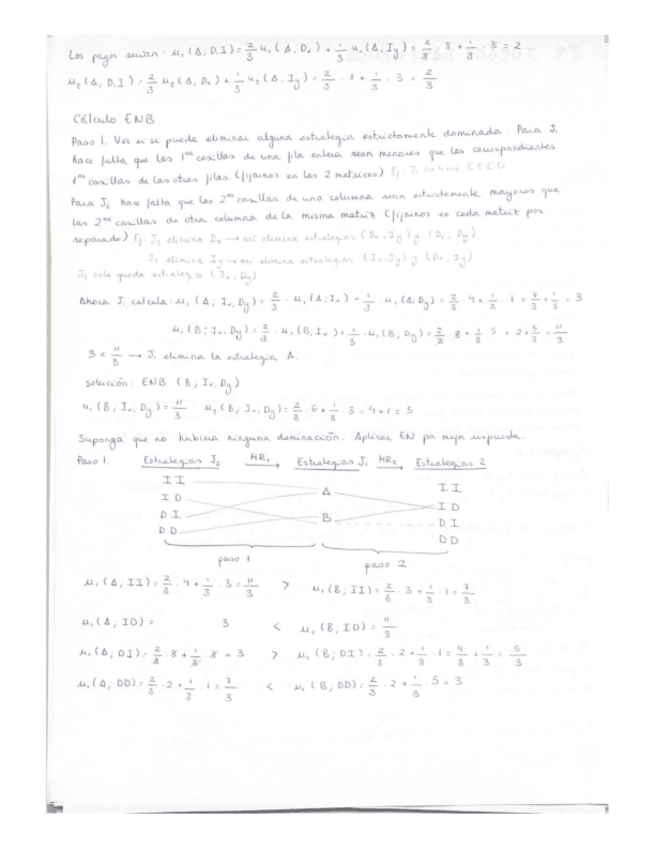 Los pagos serían: u₁(A; D,I) = 2/3 u₁(A, Dₓ) + 1/3 u₁(A, I_y) = 2/3 · 3 + 1/3 · 3 = 2
u₂(A, D,I) = 2/3 u₂(A, Dₓ) + 1/3 u₂(A, I_y) = 2/3 · 1 + 1/3 · 3 = 2/3
Cálculo ENB
Paso 1. Ver si se puede eliminar alguna estrategia estrictamente dominada. Para J₁
hace falta que las 1ªs casillas de una fila entera sean menores que las correspondientes
1ªs casillas de las otras filas (fijarnos en las 2 matrices) Ej. J₁ no hace
Para J₂ hace falta que las 2ªs casillas de una columna sean estrictamente mayores que
las 2ªs casillas de otra columna de la misma matriz (fijarnos en cada matriz por
separado) Ej. J₂ elimina Dₓ → así elimina estrategias (Dₓ, I_y) y (Dₓ, D_y)
J₂ elimina I_y → así elimina estrategias (Iₓ, I_y) y (Dₓ, I_y)
J₂ solo queda estrategia (Iₓ, D_y)
Ahora J₁ calcula: u₁(A; Iₓ, D_y) = 2/3 · u₁(A; Iₓ) + 1/3 · u₁(A; D_y) = 2/3 · 4 + 1/3 · 1 = 8/3 + 1/3 = 3
u₁(B; Iₓ, D_y) = 2/3 · u₁(B, Iₓ) + 1/3 · u₁(B, D_y) = 2/3 · 3 + 1/3 · 5 = 2 + 5/3 = 11/3
3 < 11/3 → J₁ elimina la estrategia A.
solución: ENB (B; Iₓ, D_y)
u₁(B; Iₓ, D_y) = 11/3 u₂(B; Iₓ, D_y) = 2/3 · 6 + 1/3 · 3 = 4 + 1 = 5
Suponga que no hubiera ninguna dominación. Aplicar EN por mejor respuesta.
Paso 1. Estrategias J₂ MR₁ → Estrategias J₁ MR₂ → Estrategias 2
II A II
ID ID
DI B DI
DD DD
paso 1 paso 2
u₁(A; II) = 2/3 · 4 + 1/3 · 3 = 11/3 > u₁(B; II) = 2/3 · 3 + 1/3 · 1 = 7/3
u₁(A; ID) = 3 < u₁(B; ID) = 11/3
u₁(A; DI) = 2/3 · 3 + 1/3 · 3 = 3 > u₁(B; DI) = 2/3 · 2 + 1/3 · 1 = 4/3 + 1/3 = 5/3
u₁(A; DD) = 2/3 · 2 + 1/3 · 1 = 7/3 < u₁(B; DD) = 2/3 · 2 + 1/3 · 5 = 3